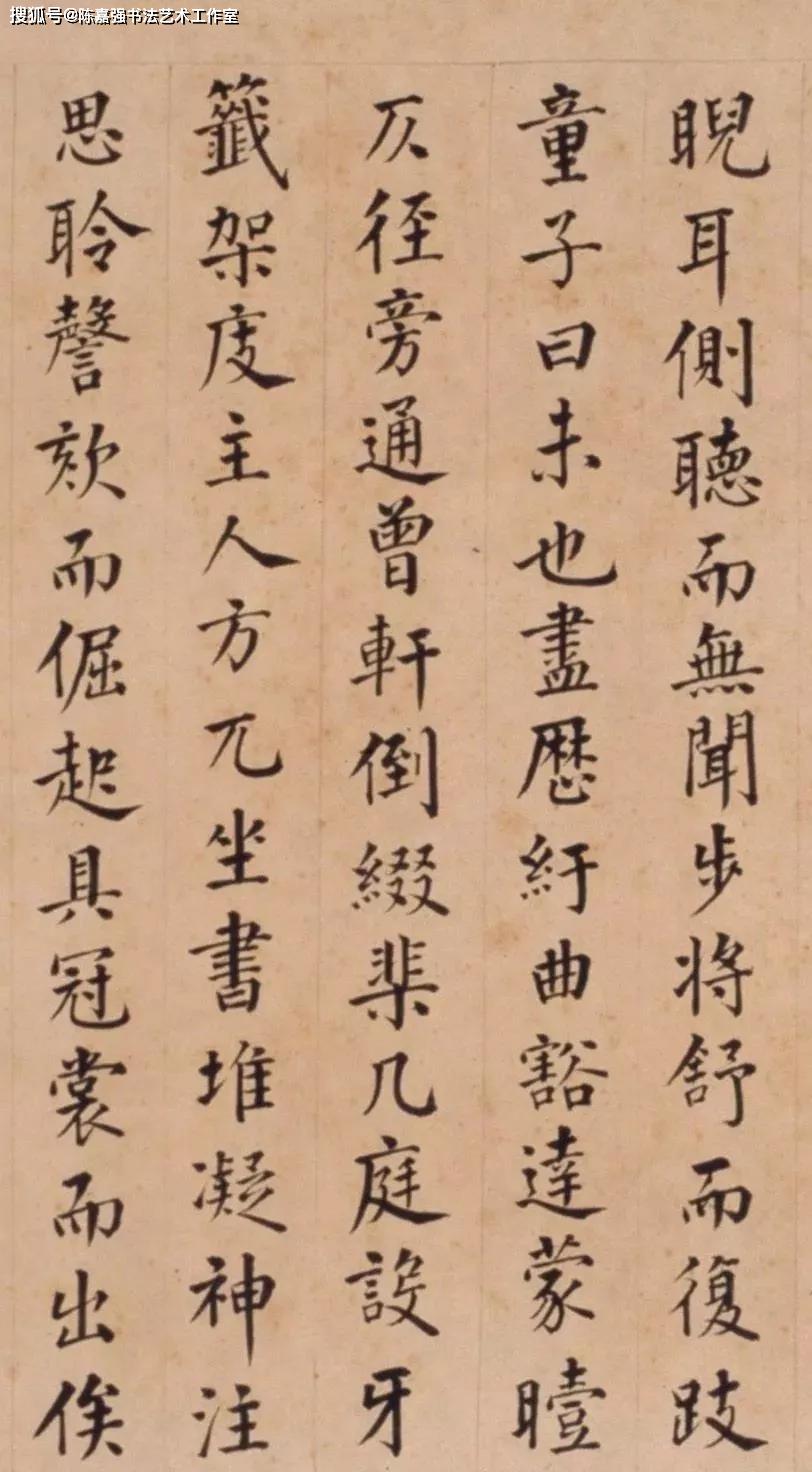 搜狐号@陈嘉强书法艺术工作室
睨耳側聽而無聞步将舒而復跂
童子曰未也盡歷紆曲豁達蒙曀
仄徑旁通曾軒倒綴棐几庭設牙
籤架庋主人方兀坐書堆凝神注
思聆謦欬而倔起具冠裳而出俟